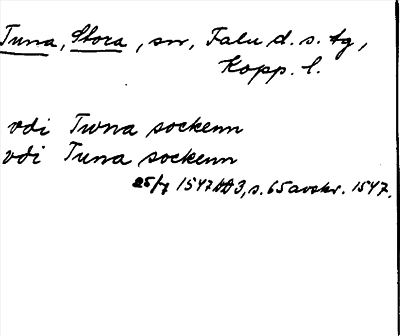 Tuna, Stora, sn, Falu d. s. tg,
Kopp. l.
vdi Twna sockenn
vdi Tuna sockenn
25/7 1547 DD 3, s. 65 avskr. 1547.